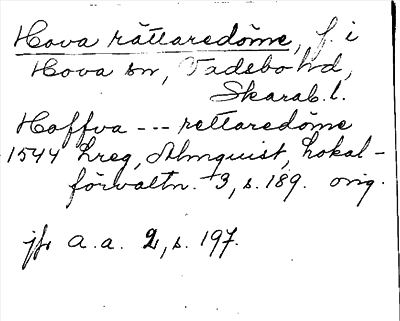 Hova rättaredöme, f. i
Hova sn, Vadsbo hd,
Skarab. l.
Hoffva --- rettaredöme
1544 Lreg, Almquist, Lokal-
förvaltn. 3, s. 189. orig.
jfr a. a. 2, s. 197.